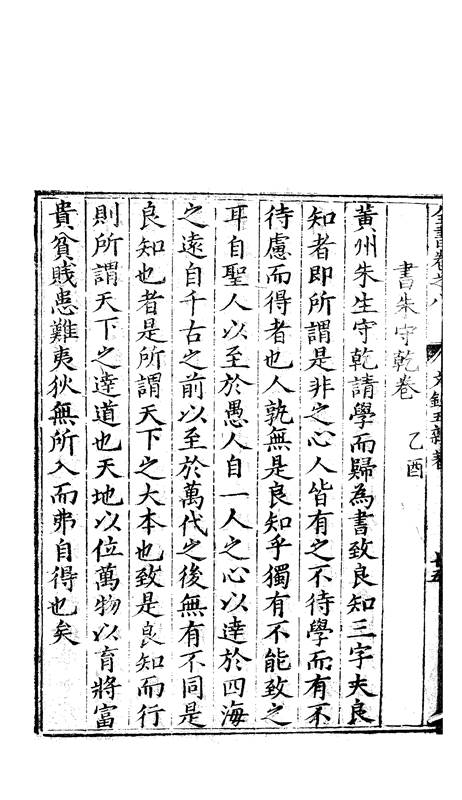 全書卷之八 文錄五雜著
書朱守乾卷 乙酉
黃州朱生守乾請學而歸為書致良知三字夫良
知者即所謂是非之心人皆有之不待學而有不
待慮而得者也人孰無是良知乎獨有不能致之
耳自聖人以至於愚人自一人之心以達於四海
之遠自千古之前以至於萬代之後無有不同是
良知也者是所謂天下之大本也致是良知而行
則所謂天下之達道也天地以位萬物以育將富
貴貧賤患難夷狄無所入而弗自得也矣